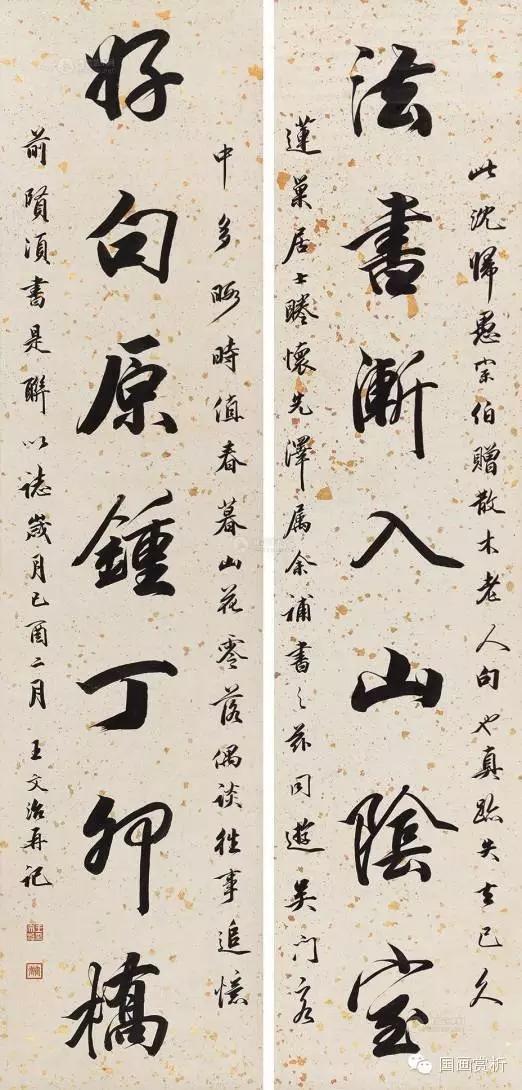 此沈归愚宗伯赠散木老人句也真跡失去已久
法書漸入山陰室
蓮巢居士睠懷先澤属余補書之兹同遊吴门客
中多暇時值春暮山花零落偶談往事追憶
好句原鍾丁卯橋
前賢須書是聯以誌歲月己酉二月 王文治再记
国画赏析